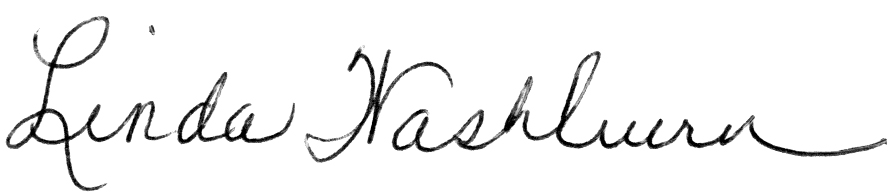 Linda Washburn